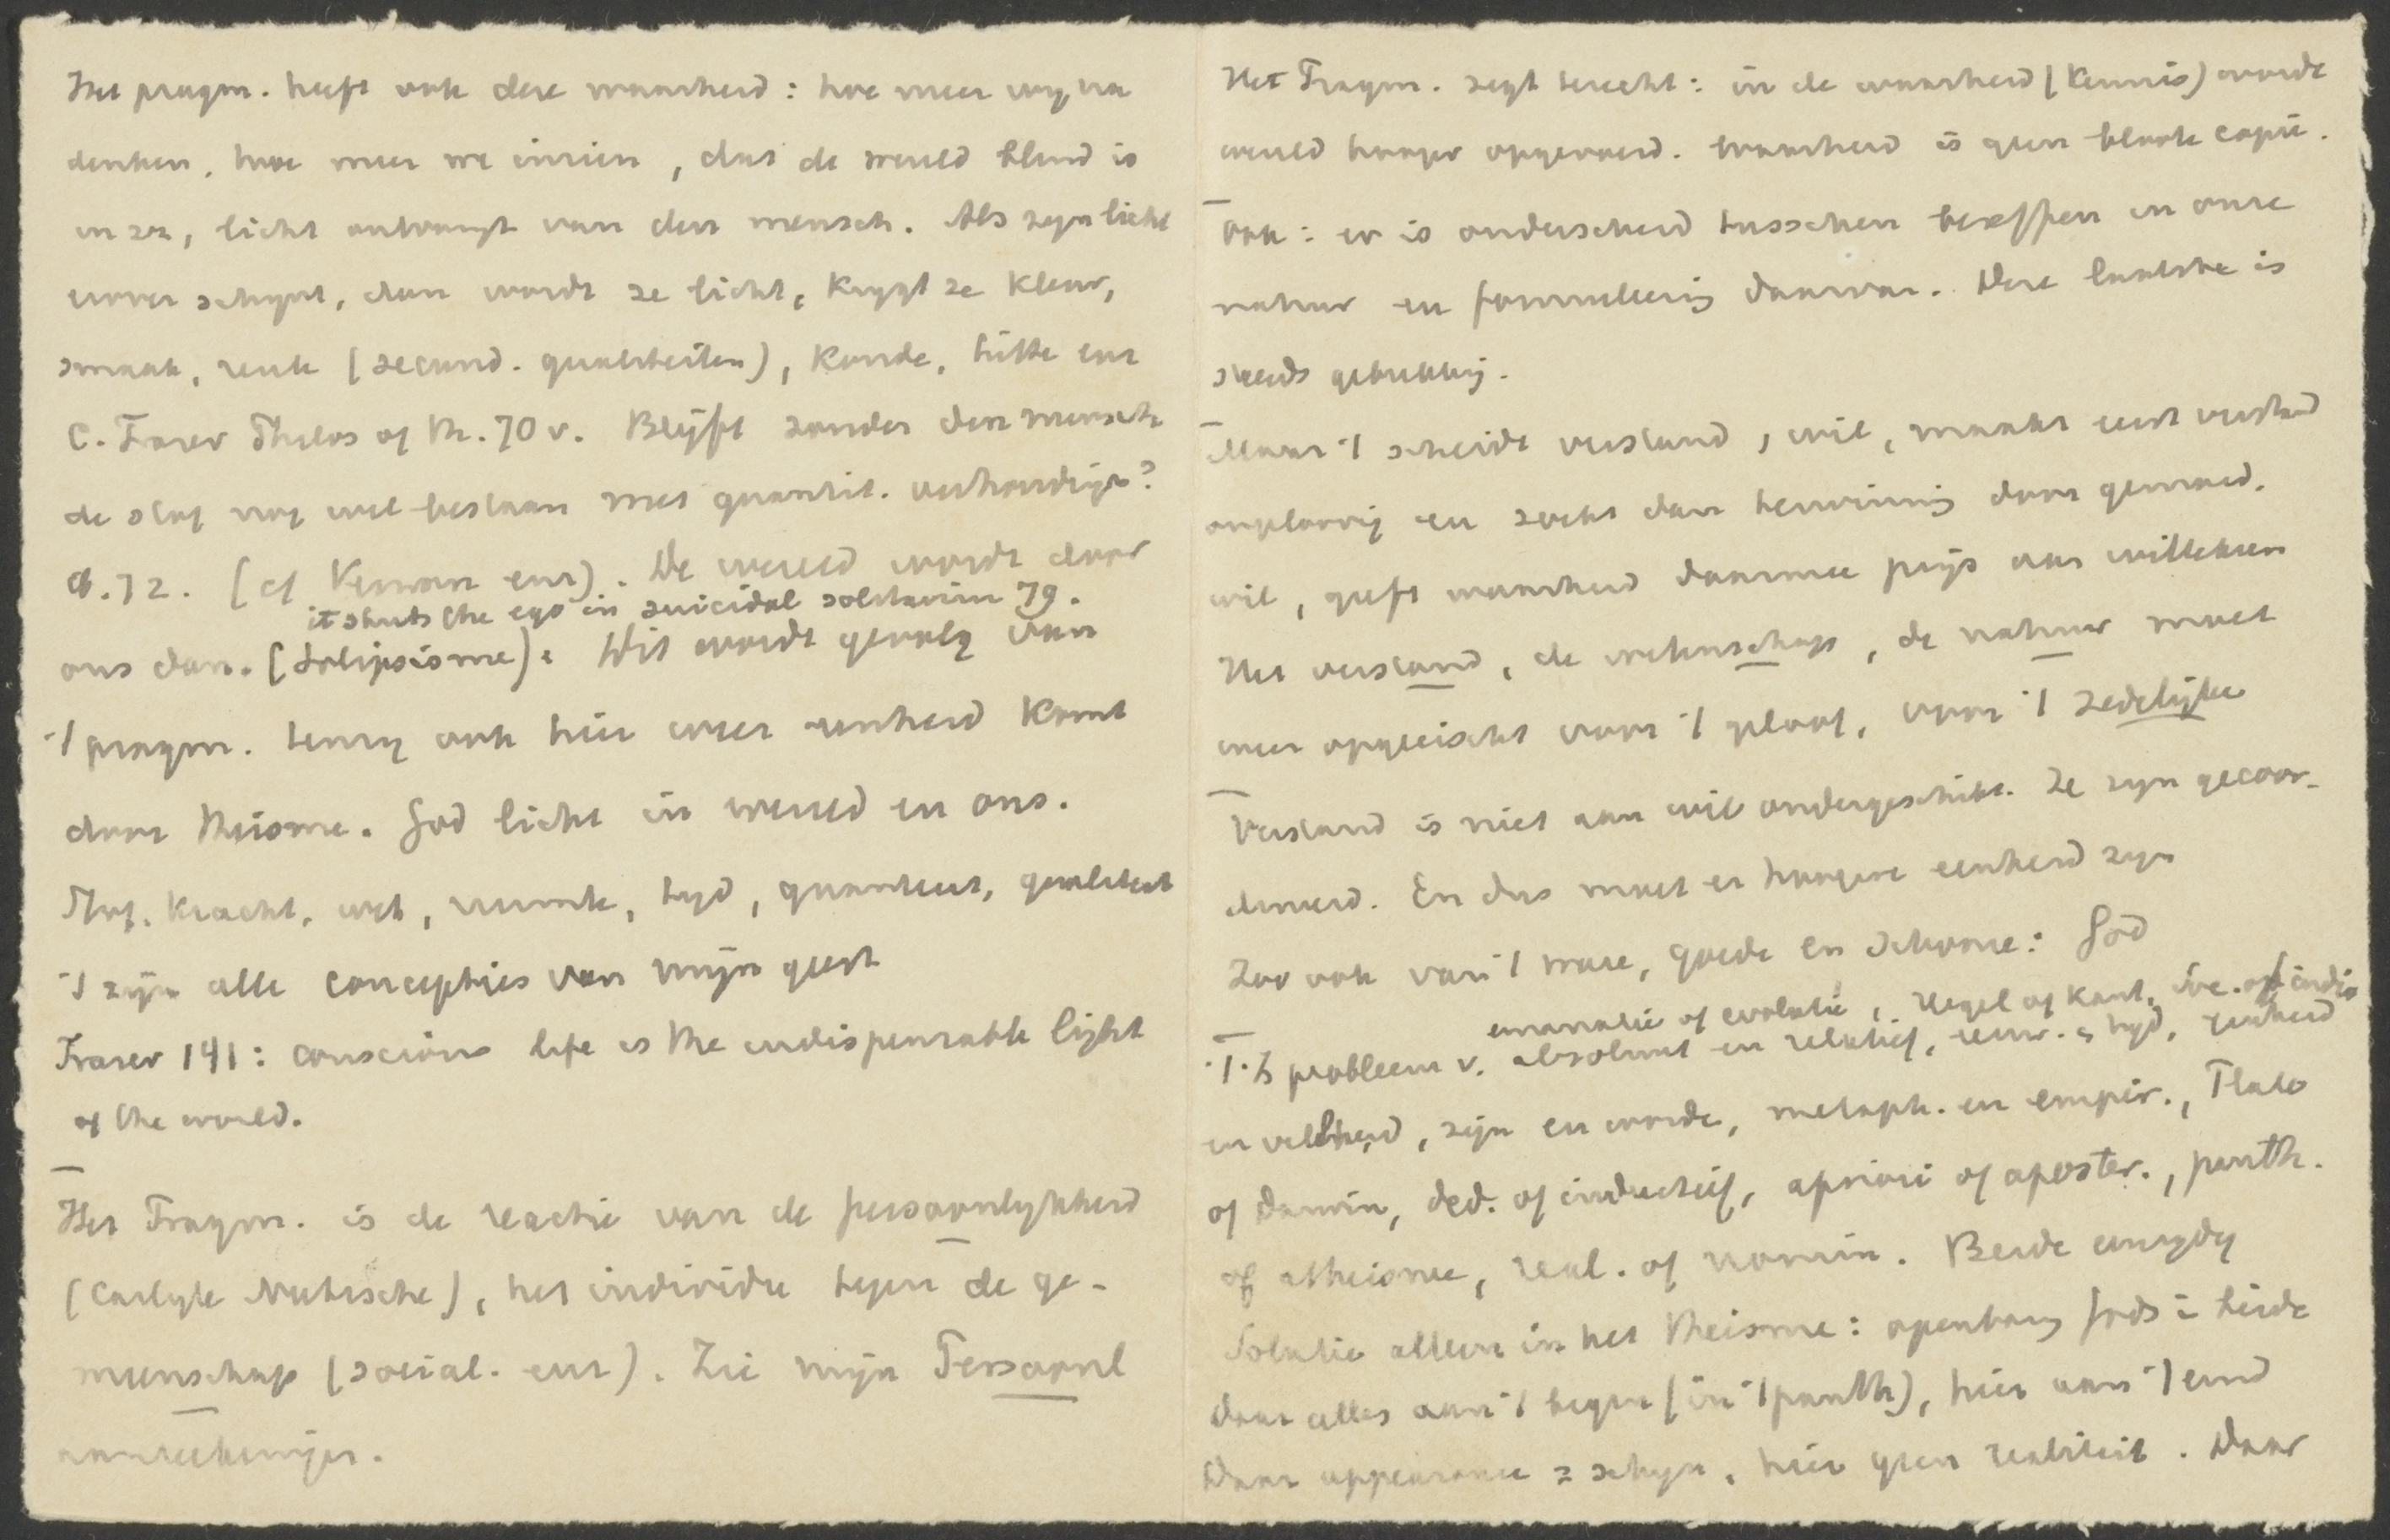 Het pragm. heeft ook deze waarheid: hoe meer wy na
denken, hoe meer we inzien, dat de wereld blind is
in zz, licht ontvangt van den mensch. Als zyn licht
erover schynt, dan wordt ze licht, krygt ze kleur,
smaak, reuk (secund. qualiteiten), koude, hitte enz
C. Fraser Philos of Th. 70 v. Blijft zonder den mensch
de stof nog wel bestaan met quantit. verhoudign?
ib. 72. (cf Verworn enz). De wereld wordt door
it shuts the ego in suicidal solitarin 79.
ons dan. (Solipsisme). Dit wordt gevolg van
't pragm. tenzy ook hier weer eenheid komt
door theisme. God licht in wereld en ons.
Stof, kracht, wet, ruimte, tyd, quantiteit, qualiteit
't zijn alle concepties van mijn geest
Fraser 141: conscious life is the indispensable light
of the world.
Het Pragm. is de reactie van de persoonlykheid
(Carlyle Nietzsche), het individu tegen de ge-
meenschap (social. enz). Zie mijn Persoonl
aanteekeningen.
Het Pragm. zegt terecht: in de waarheid (kennis) wordt
wereld hooger opgevoerd. Waarheid is geen bloote copie.
Ook: er is onderscheid tusschen beseffen in onze
natuur en formuleering daarvan. Deze laatste is
steeds gebrekkig.
Maar 't scheidt verstand, wil, maakt eerst verstand
ongelovig en zoekt dan herwinning door gemoed,
wil, geeft waarheid daarmee prijs aan willekeur
Het verstand, de wetenschap, de natuur moet
weer opgeeischt voor 't geloof, voor 't zedelijke
Verstand is niet aan wil ondergeschikt. Ze zyn gecoor-
dineerd. En dus moet er hoogere eenheid zyn
Zoo ook van 't ware, goede en schoone: God
emanatie of evolutie, Hegel of Kant,
't Is probleem v. absoluut en relatief, eeuw. en tyd, eenheid
en veelheid, zijn en worden, metaph. en empir., Plato
of Darwin, ded. of inductief, apriori of aposter., panth.
of atheisme, real. of nomin. Beide eenzydig
Solutie alleen in het theisme: openbaring Gods in beide
Daar alles aan 't begin (in 't panth), hier aan 't eind
Daar appearance = schyn, hier geen realiteit. Daar